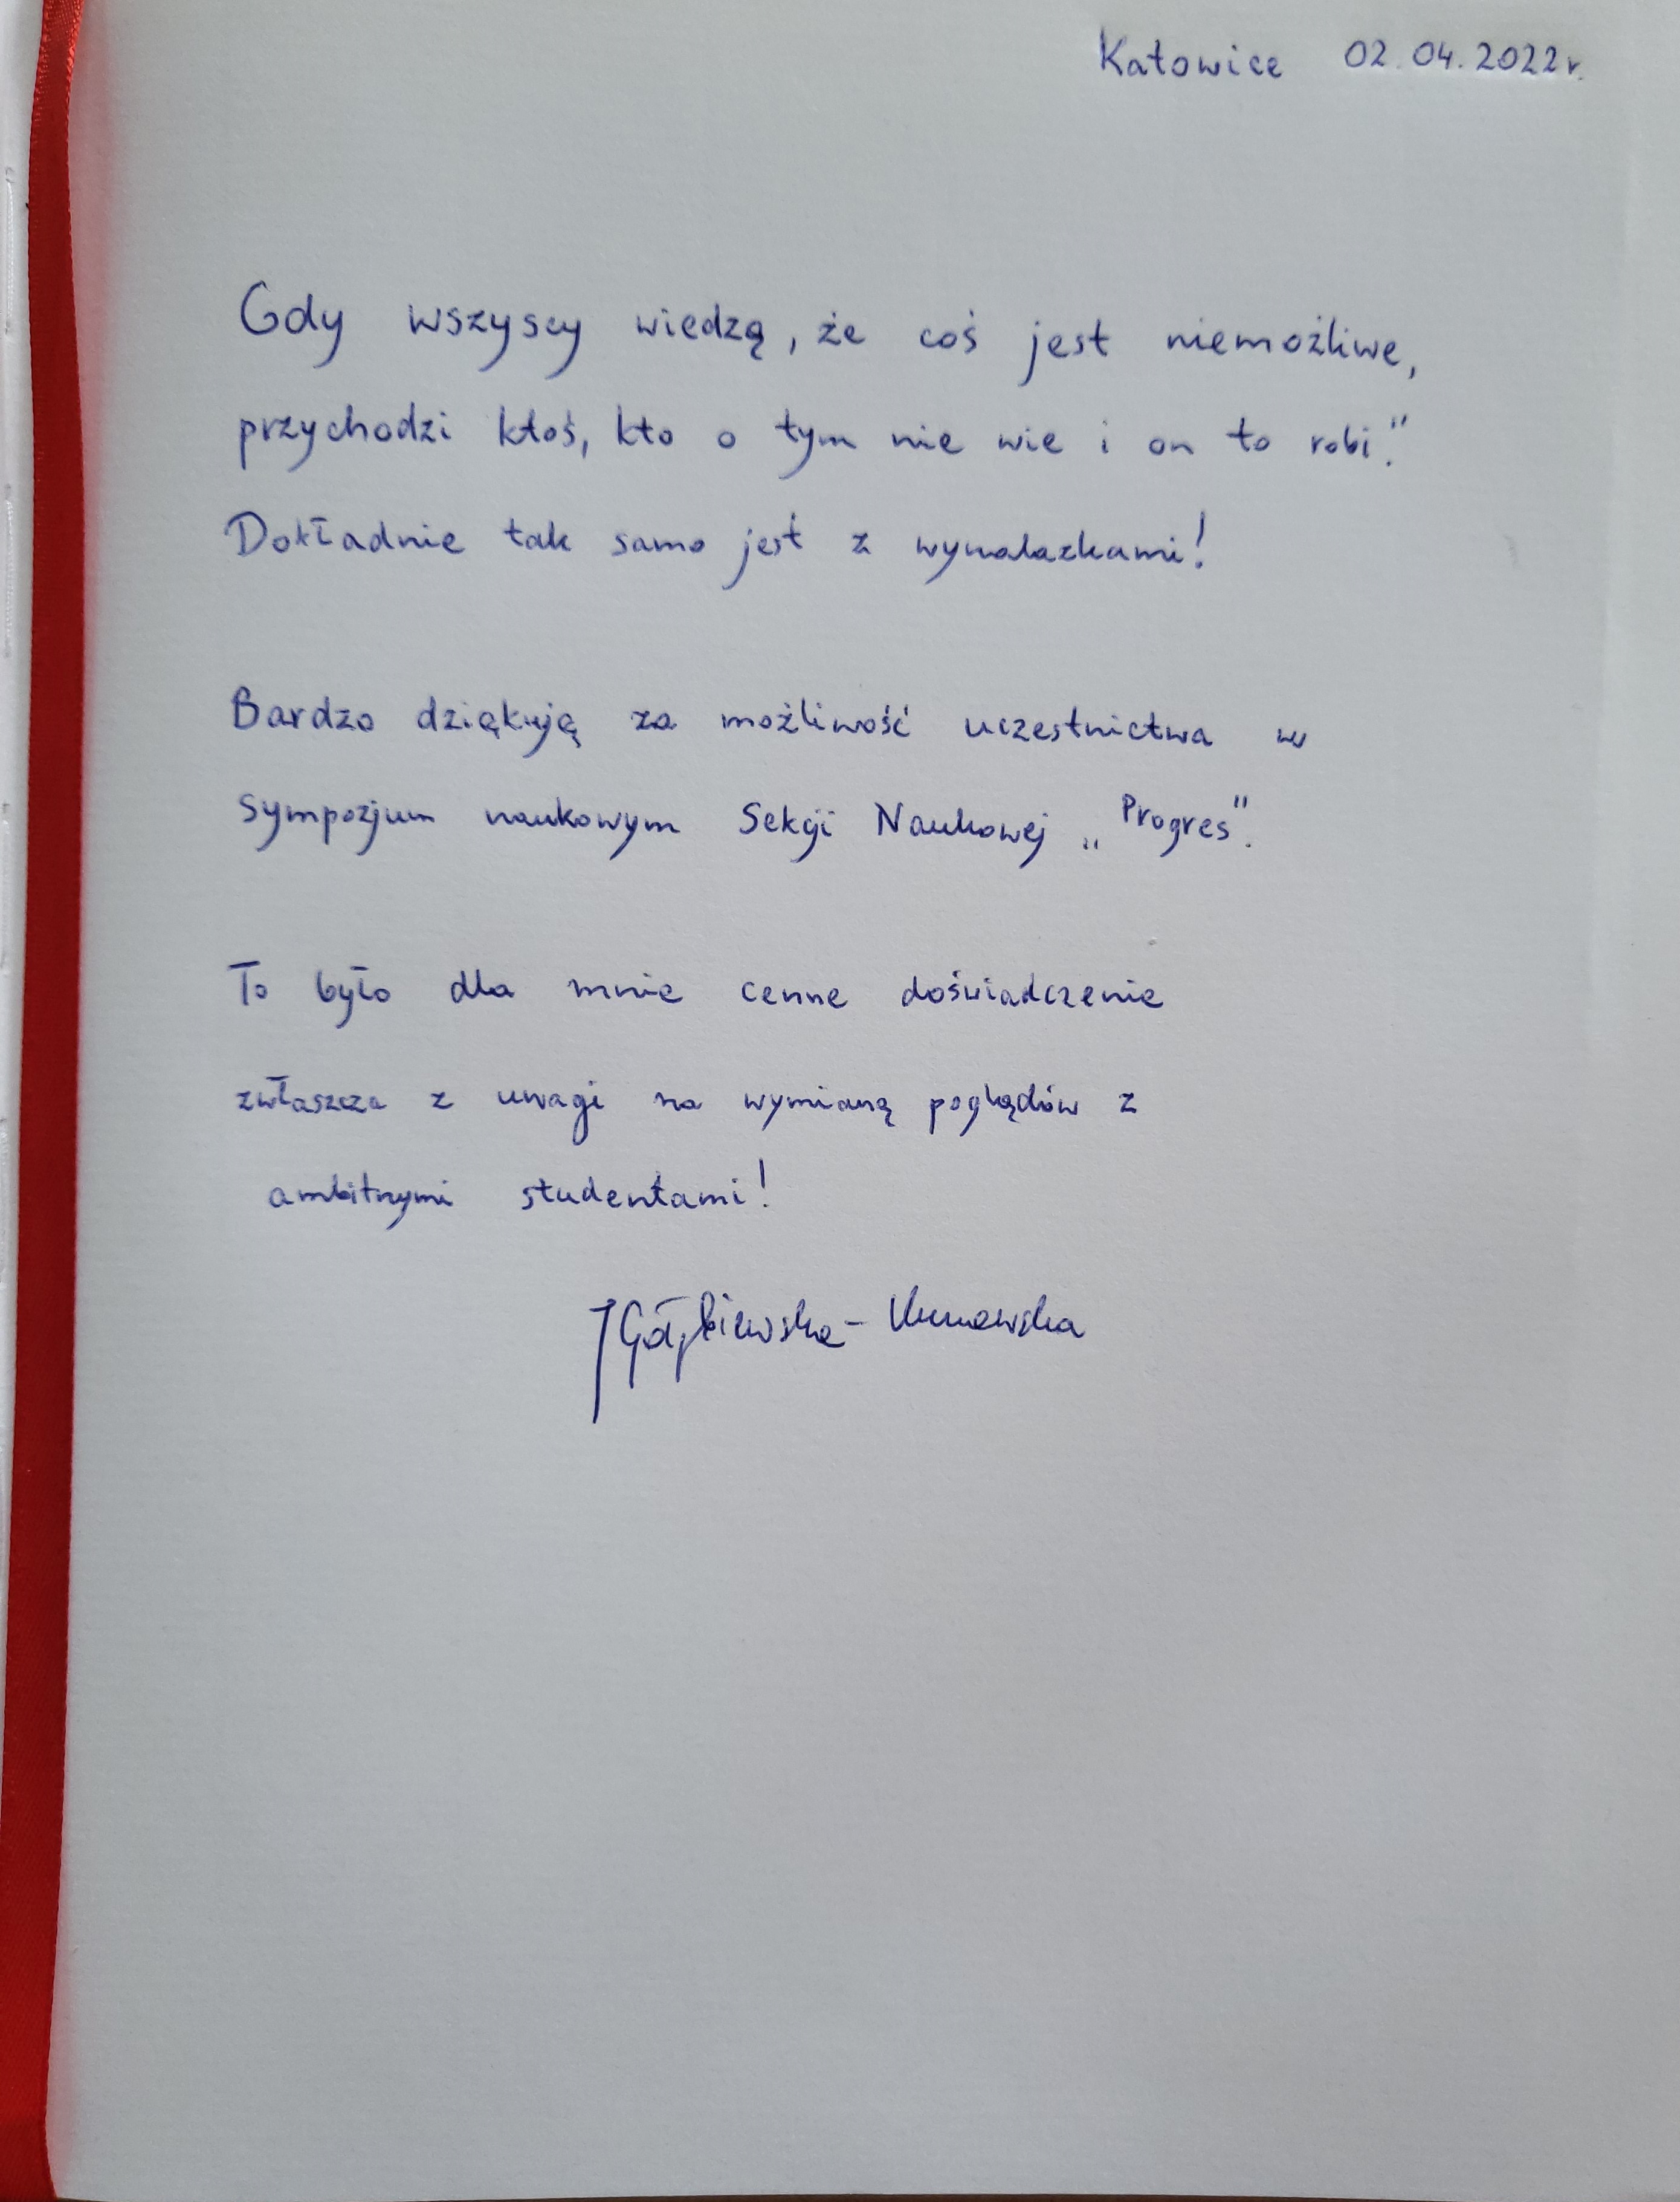 Katowice 02.04.2022 r.
Gdy wszyscy wiedzą, że coś jest niemożliwe,
przychodzi ktoś, kto o tym nie wie i on to robi."
Dokładnie tak samo jest z wynalazkami!
Bardzo dziękuję za możliwość uczestnictwa w
sympozjum naukowym Sekcji Naukowej „Progres".
To było dla mnie cenne doświadczenie
zwłaszcza z uwagi na wymianę poglądów z
ambitnymi studentami!